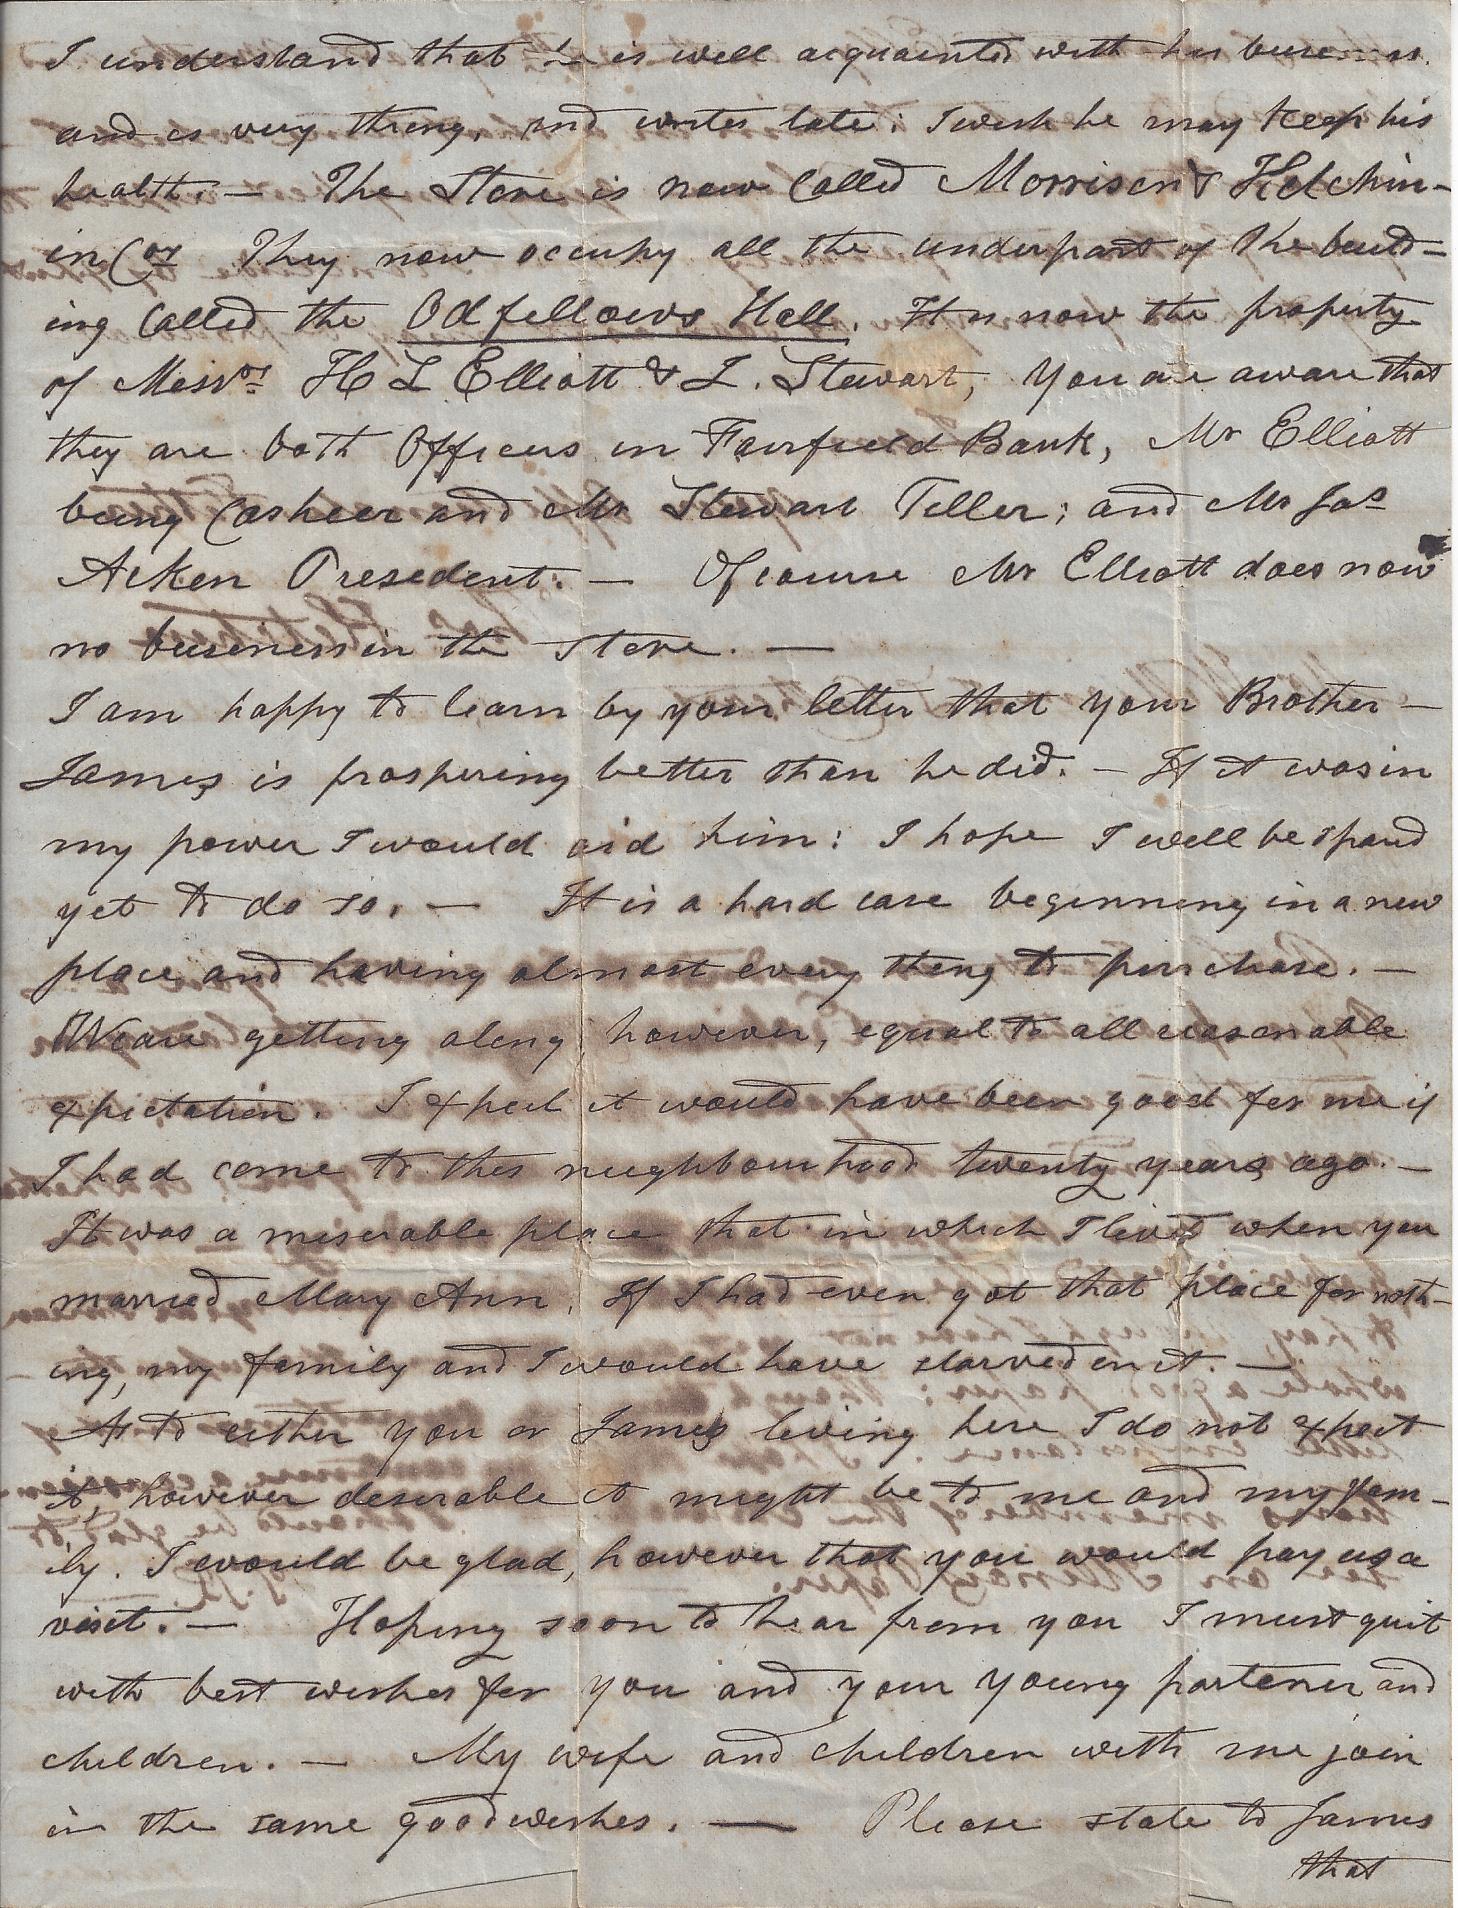 I understand that he is well acquainted with his business.
and is very thrang, and writes late: I wish he may keep his
health: — The Store is now Called Morrison & Ketchin-
in Cos They now occupy all the underpart of the build-
ing Called the Odfellows Hall. It is now the property
of Messrs H L Elliott & L. Stewart, You are aware that
they are both Officers in Fairfield Bank, Mr Elliott
being Casheer and Mr Stewart Teller; and Mr Jas
Aiken President. — Of course Mr Elliott does now
no business in the Store. —
I am happy to learn by your letter that your Brother —
James is prospering better than he did. — If it was in
my power I would aid him: I hope I will be spared
yet to do so. — It is a hard case beginning in a new
place and having almost every thing to purchase. —
We are getting along, however, equal to all reasonable
expectation. I expect it would have been good for me if
I had come to this neighbourhood twenty years ago. —
It was a miserable place that in which I lived when you
married Mary Ann. If I had even got that place for noth-
ing, my family and I would have starved on it. —
As to either you or James living here I do not expect
it, however desirable it might be to me and my fam-
ily. I would be glad, however that you would pay us a
visit. — Hoping soon to hear from you I must quit
with best wishes for you and your young partener and
children. — My wife and children with me join
in the same good wishes. — Please state to James
that